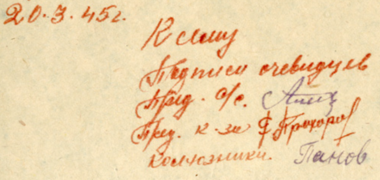 20.3.45г.
К сему
Подписи очевидцев
Пред. с/с.
Пред. к-за Прохоров
колхозники. Панов